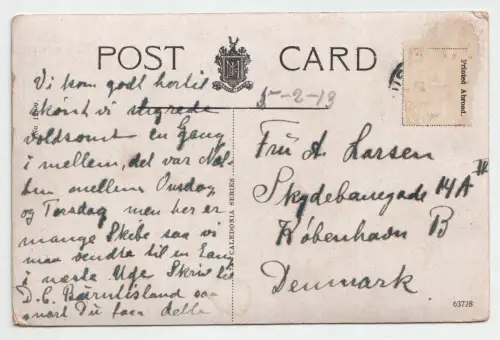 POST CARD
Printed Abroad.
Vi kom godt hertil
skönt vi
voldsomt en Gang
i mellem, det var Nat
ten mellem Onsdag
og Torsdag men her er
mange Skibe saa vi
maa vendte til en Gang
i næste Uge Skriv
D. C. Burntisland saa
snart Du faar dette
5-2-13
CALEDONIA SERIES
Frü A. Larsen
Skydebanegade 14A IV
København B
Denmark
63728